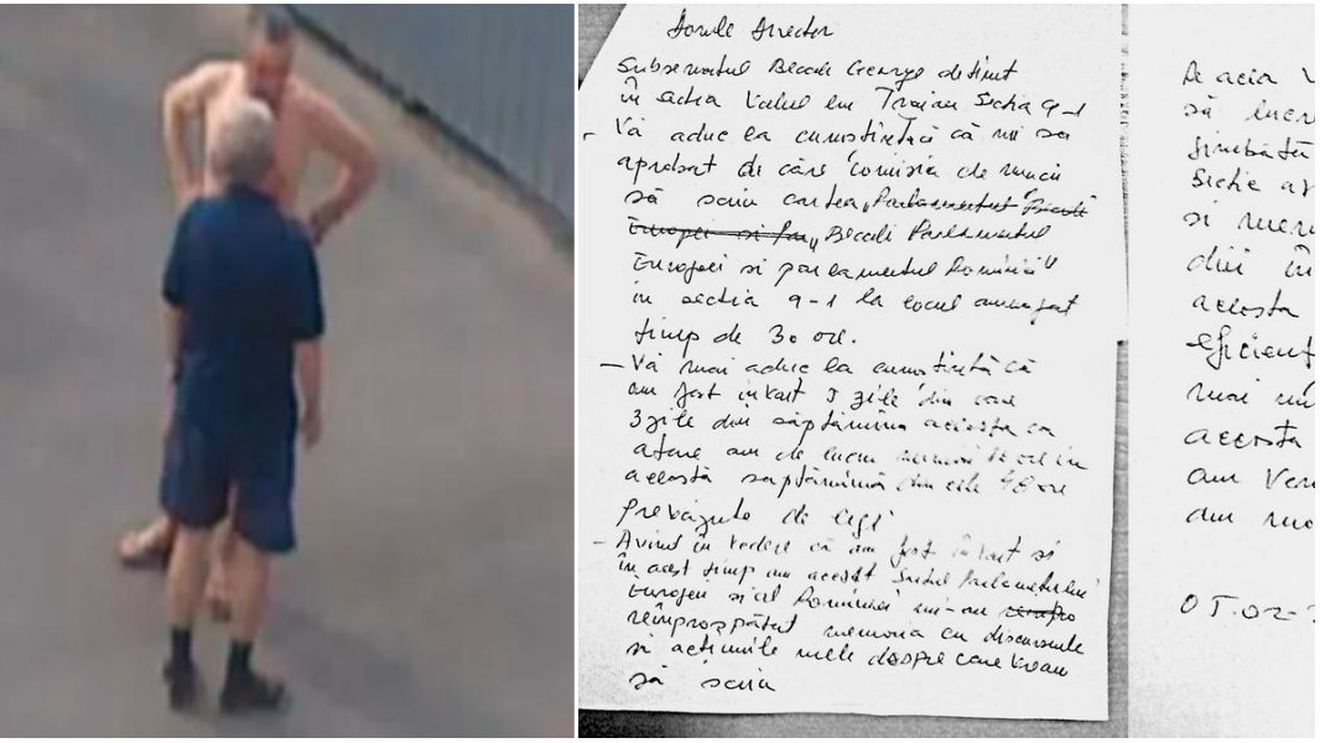 Domle Director
Subsemnatul Becali George detinut
în sectia Valul lui Traian Sectia 9-1
- Vă aduc la cunostintă că mi sa
aprobat de căre Comisia de muncă
să scriu cartea „Parlamentul Becali
Europei si „Becali Parlamentul
Europei si parlamentul României"
in sectia 9-1 la locul amenajat
timp de 30 ore.
- Vă mai aduc la cunostintă că
am fost invoit 5 zile din care
3 zile din săptămîna aceasta ca
atare am de lucru ore in
această saptămînă din cele 48 ore
prevăzute de lege
- Avind în vedere că am fost si
în acest timp am accesat Saitul Parlamentului
Europei si al României mi-au
reîmprospătat memoria cu discursurile
si actiunile mele despre care vream
să scriu
De acia
să lucr
simbătă
Sectie
si
din în
acesta
eficient
mai
acesta
am
am